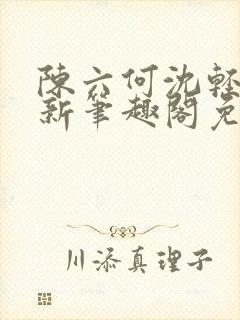 陳六何沈輕
新筆趣閣免
川添真理子